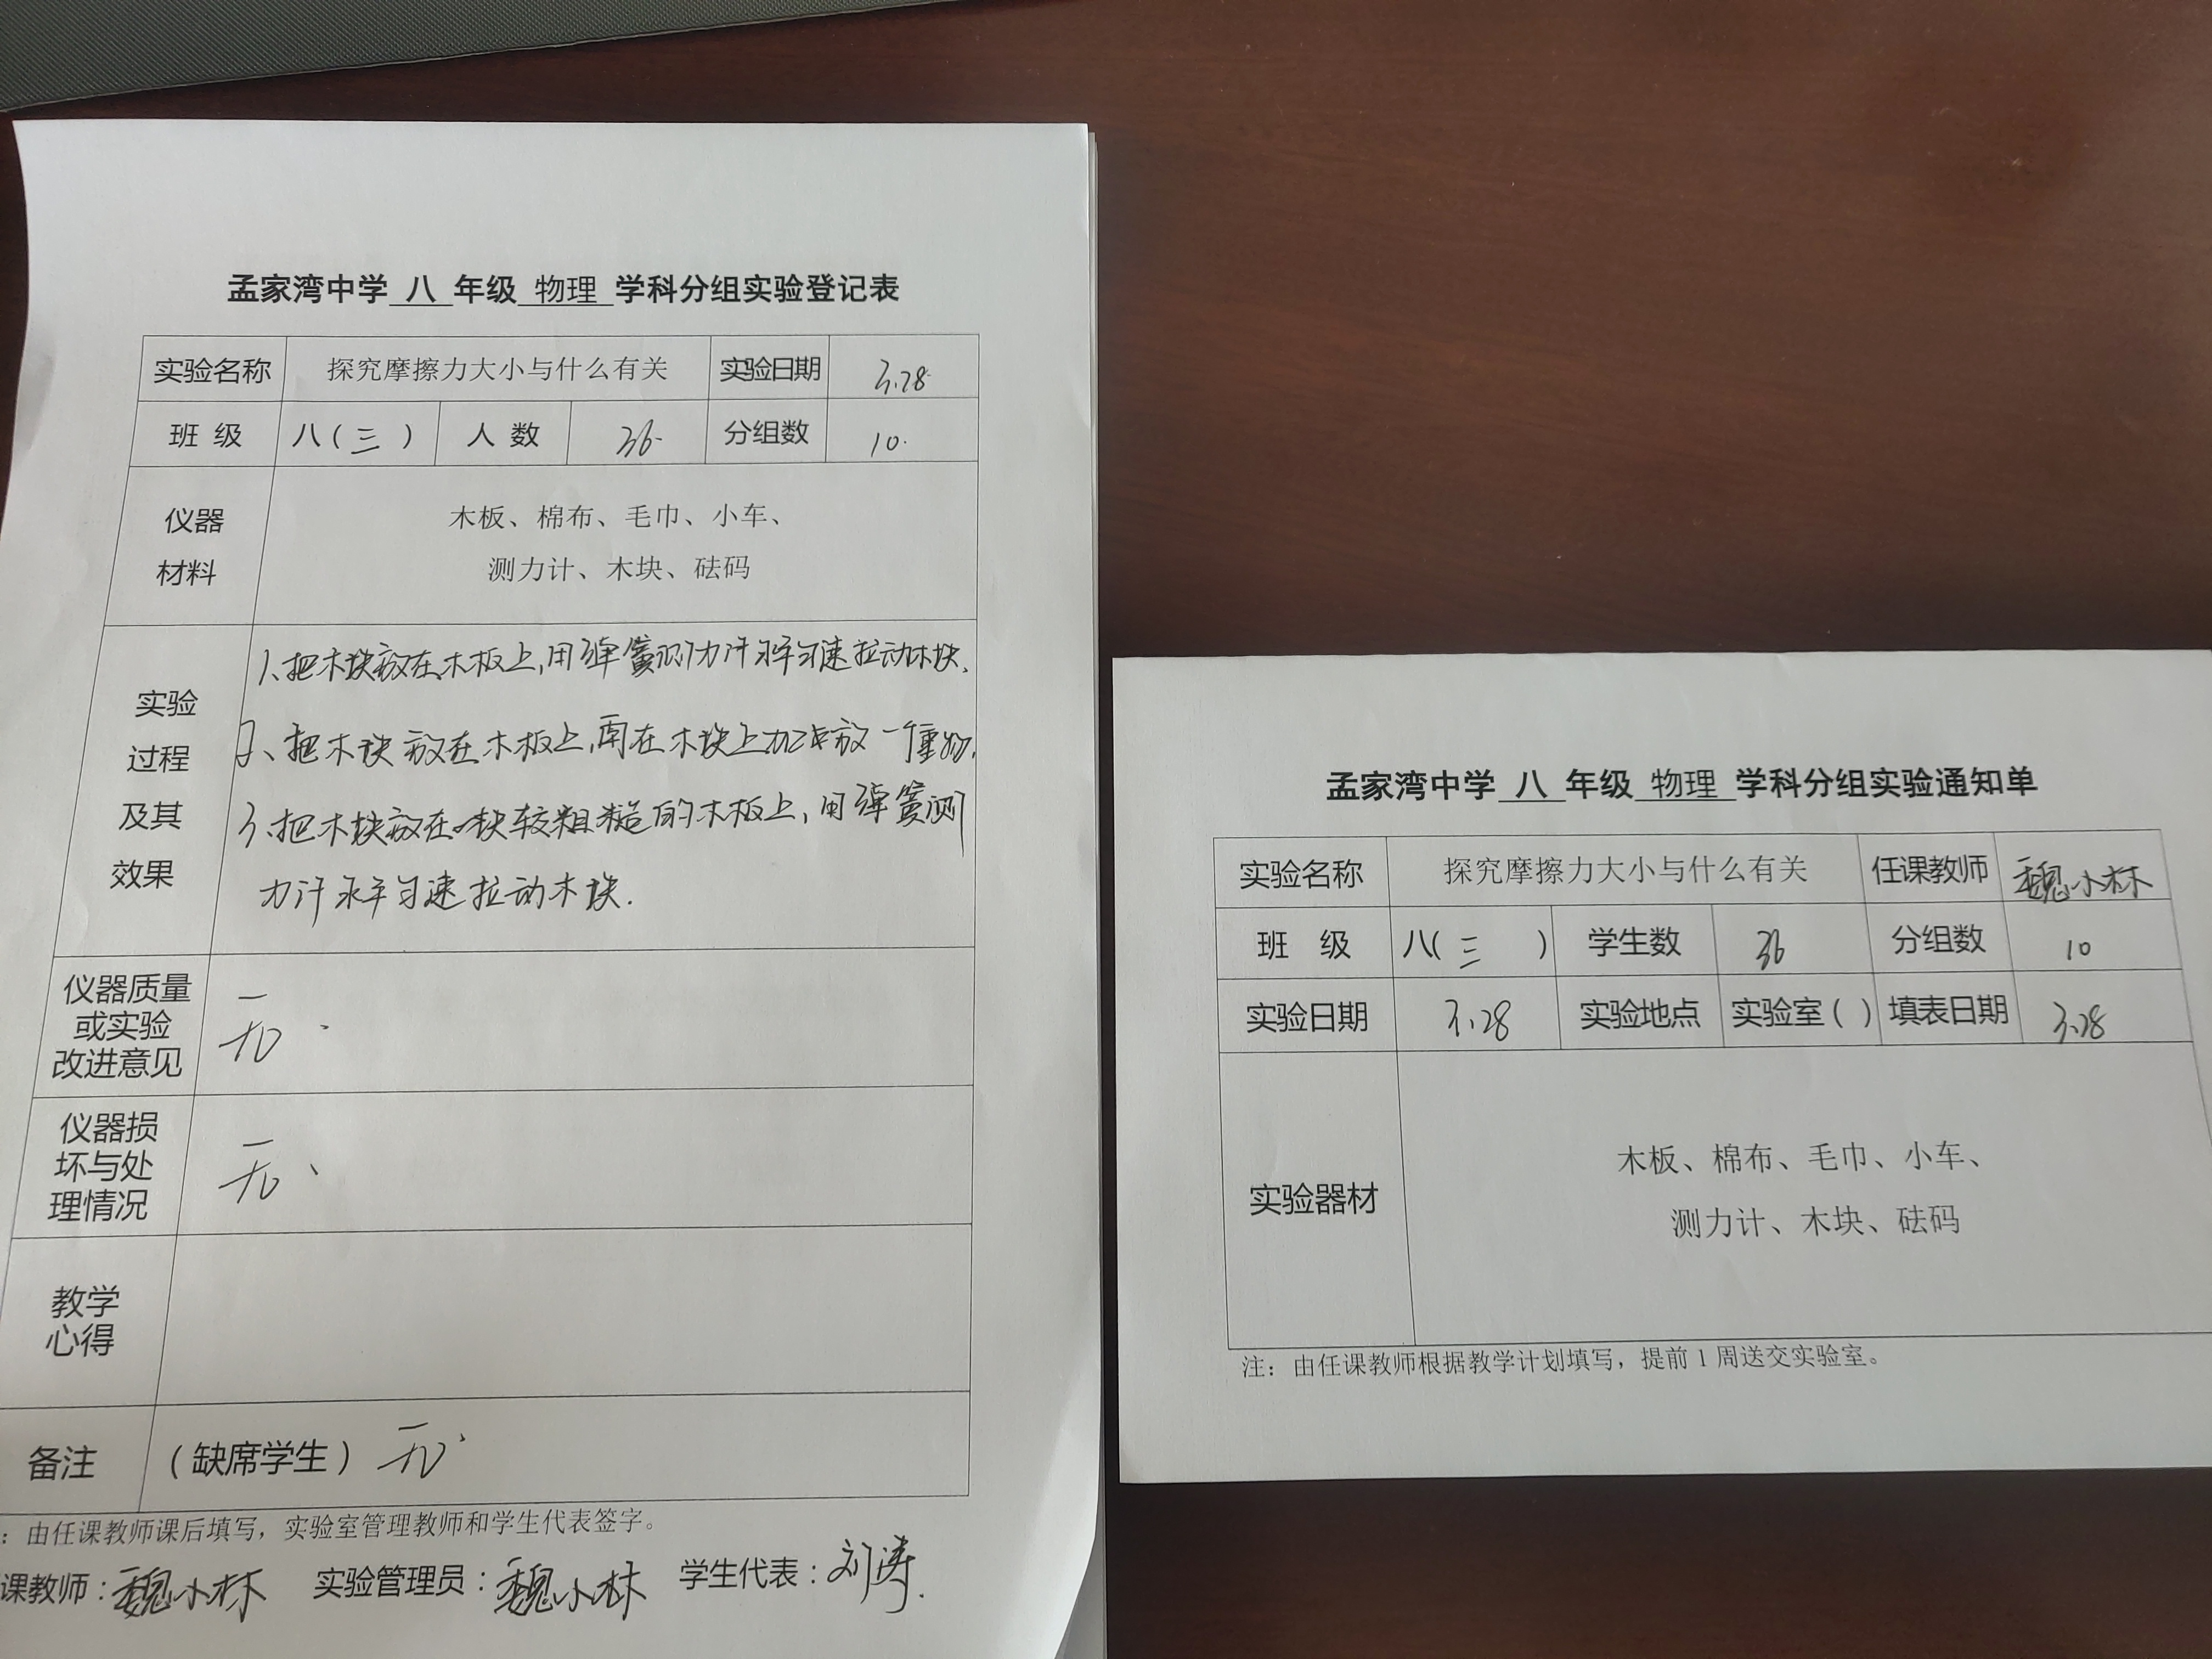 孟家湾中学 八 年级 物理 学科分组实验登记表
实验名称 探究摩擦力大小与什么有关 实验日期 3.28
班 级 八(三) 人 数 36 分组数 10
仪器 木板、棉布、毛巾、小车、
材料 测力计、木块、砝码
实验
过程
及其
效果
1、把木块放在木板上,用弹簧测力计水平匀速拉动木块.
2、把木块放在木板上,再在木块上加上放一个重物.
3、把木块放在一块较粗糙的木板上,用弹簧测
力计水平匀速拉动木块.
仪器质量
或实验
改进意见
无.
仪器损
坏与处
理情况
无、
教学
心得
备注 (缺席学生) 无
:由任课教师课后填写,实验室管理教师和学生代表签字。
课教师:魏小林 实验管理员:魏小林 学生代表:刘涛.
孟家湾中学 八 年级 物理 学科分组实验通知单
实验名称 探究摩擦力大小与什么有关 任课教师 魏小林
班 级 八(三 ) 学生数 36 分组数 10
实验日期 3.28 实验地点 实验室( ) 填表日期 3.28
实验器材
木板、棉布、毛巾、小车、
测力计、木块、砝码
注:由任课教师根据教学计划填写,提前1周送交实验室。